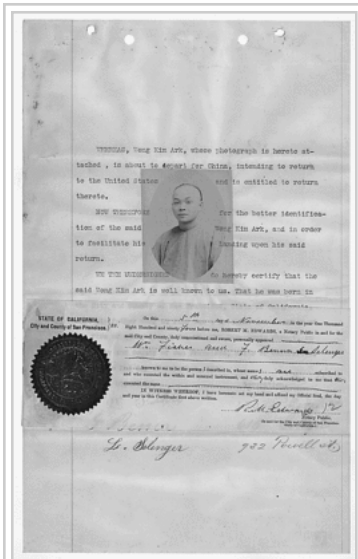 WHEREAS, Wong Kim Ark, whose photograph is hereto at-
tached , is about to depart for China, intending to return
to the United States and is entitled to return
thereto.
NOW THEREFORE for the better identifica-
tion of the said Wong Kim Ark, and in order
to facilitate his landing upon his said
return.
WE THE UNDERSIGNED do hereby certify that the
said Wong Kim Ark is well known to us. That he was born in
STATE OF CALIFORNIA,
City and County of San Francisco. } ss.
On this 5th day of November in the year One Thousand
Eight Hundred and ninety four before me, ROBERT M. EDWARDS, a Notary Public in and for the
said City and County, duly commissioned and sworn, personally appeared
W. Fisher and F. Benna Selenger
known to me to be the person s described in, whose name s are subscribed to
and who executed the within and annexed instrument, and they duly acknowledged to me that they
executed the same.
IN WITNESS WHEREOF, I have hereunto set my hand and affixed my Official Seal, the day
and year in this Certificate first above written.
R. M. Edwards
Notary Public,
L. Selenger 932 Powell st,